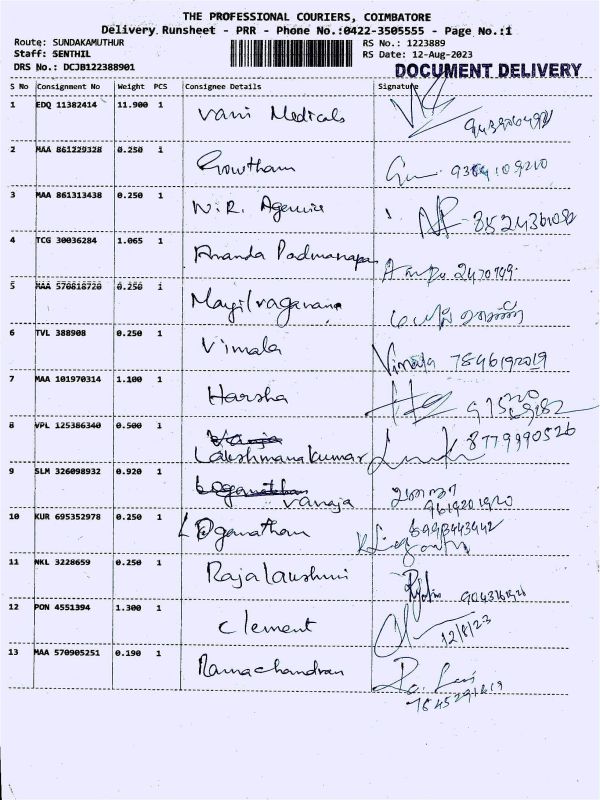 THE PROFESSIONAL COURIERS, COIMBATORE
Delivery Runsheet - PRR - Phone No.:0422-3505555 - Page No.:1
Route: SUNDAKAMUTHUR RS No.: 1223889
Staff: SENTHIL RS Date: 12-Aug-2023
DRS No.: DCJB122388901 DOCUMENT DELIVERY
S No Consignment No Weight PCS Consignee Details Signature
1 EDQ 11382414 11.900 1 Vani Medicals
2 MAA 861229328 0.250 1 Gowtham
3 MAA 861313438 0.250 1 N.R.
4 TCG 30036284 1.065 1 Ananda
5 MAA 570818720 0.250 1
6 TVL 388908 0.250 1 Vimala Vimala 7846192019
7 MAA 101970314 1.100 1 Harsha
8 VPL 125386340 0.500 1 Lakshmanakumar 8779990526
9 SLM 326098932 0.920 1 vanaja 9619201920
10 KUR 695352978 0.250 1 Loganatham
11 NKL 3228659 0.250 1
12 PON 4551394 1.300 1 Clement 12/8/23
13 MAA 570905251 0.190 1 Ramachandran